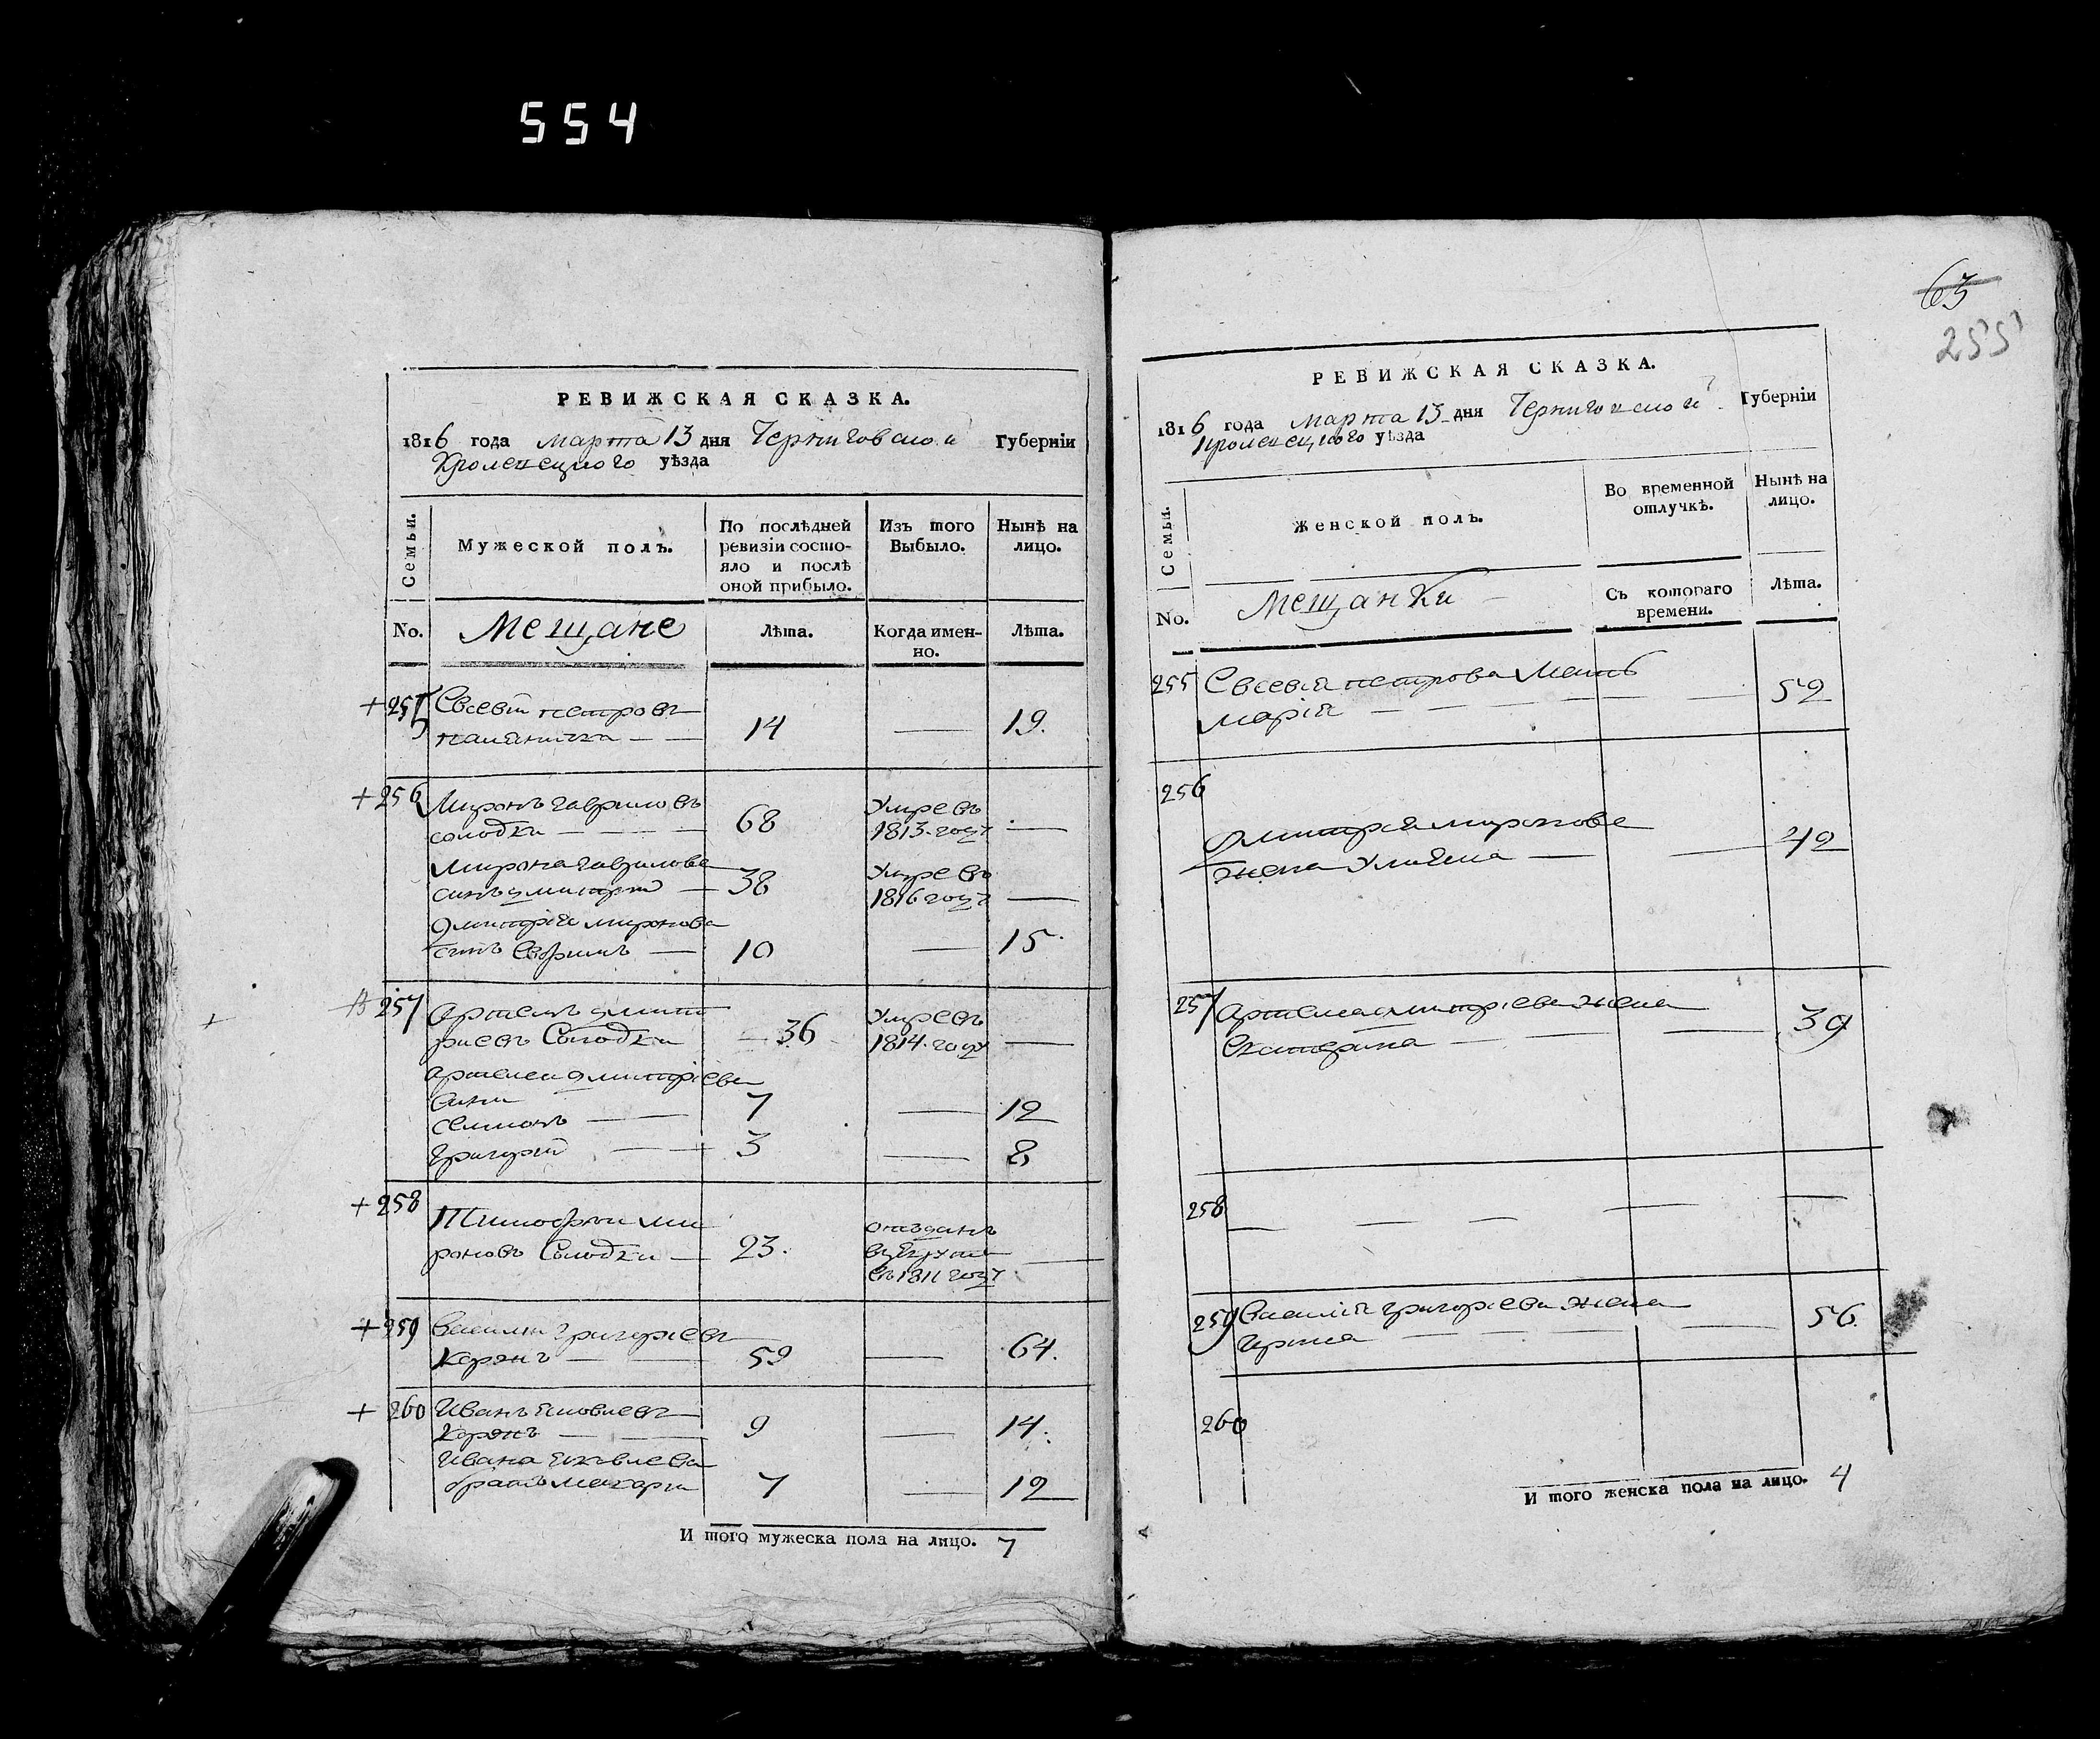 554
РЕВИЖСКАЯ СКАЗКА.
1816 года марта 13 дня Черниговской Губерніи
Кролевецкого уѣзда
Семьи.
Мужеской полъ.
По послѣдней ревизіи состо-
яло и послѣ
оной прибыло.
Изъ того
Выбыло.
Нынѣ на
лицо.
No.
Мещане
Лѣта.
Когда имен-
но.
Лѣта.
+255 Евсевій петровъ
14 — 19.
+256 Миронъ гавриловъ
солодкій — 68 Умре въ 1813. году —
Мирона гаврилова
синъ дмитрій — 38 Умре въ 1816 году —
Дмитрія миронова
синъ Ефримъ — 10 — 15.
257 Артемъ дмит
риевъ Солодкій — 36 Умре въ 1814. году —
Артема дмитріева
сини
семионъ — 7 — 12
григорій — 3 — 8
+258 Тимофей ми
роновъ Солодкій — 23. отданъ
врекруты
въ 1811 году —
+259 Василій григориевъ
Корянъ — 59 — 64.
+260 Иванъ яковлевъ
Корянъ — 9 — 14.
Ивана яковлева
братъ макарій 7 — 12
И того мужеска пола на лицо. 7
63
255
РЕВИЖСКАЯ СКАЗКА.
1816 года марта 13 дня Черниговской Губерніи
Кролевецкого уѣзда
Семьи.
Женской полъ.
Во временной
отлучкѣ.
Нынѣ на
лицо.
No.
Мещанки
Съ котораго
времени.
Лѣта.
255 Евсевія петрова Мать
марія — 52
256
Дмитрія миронова
жена Улияна — 42
257 Артема дмитріева жена
Екатерина — 39
258 —
259 Василія григориева жена
Ирина — 56.
260
И того женска пола на лицо. 4